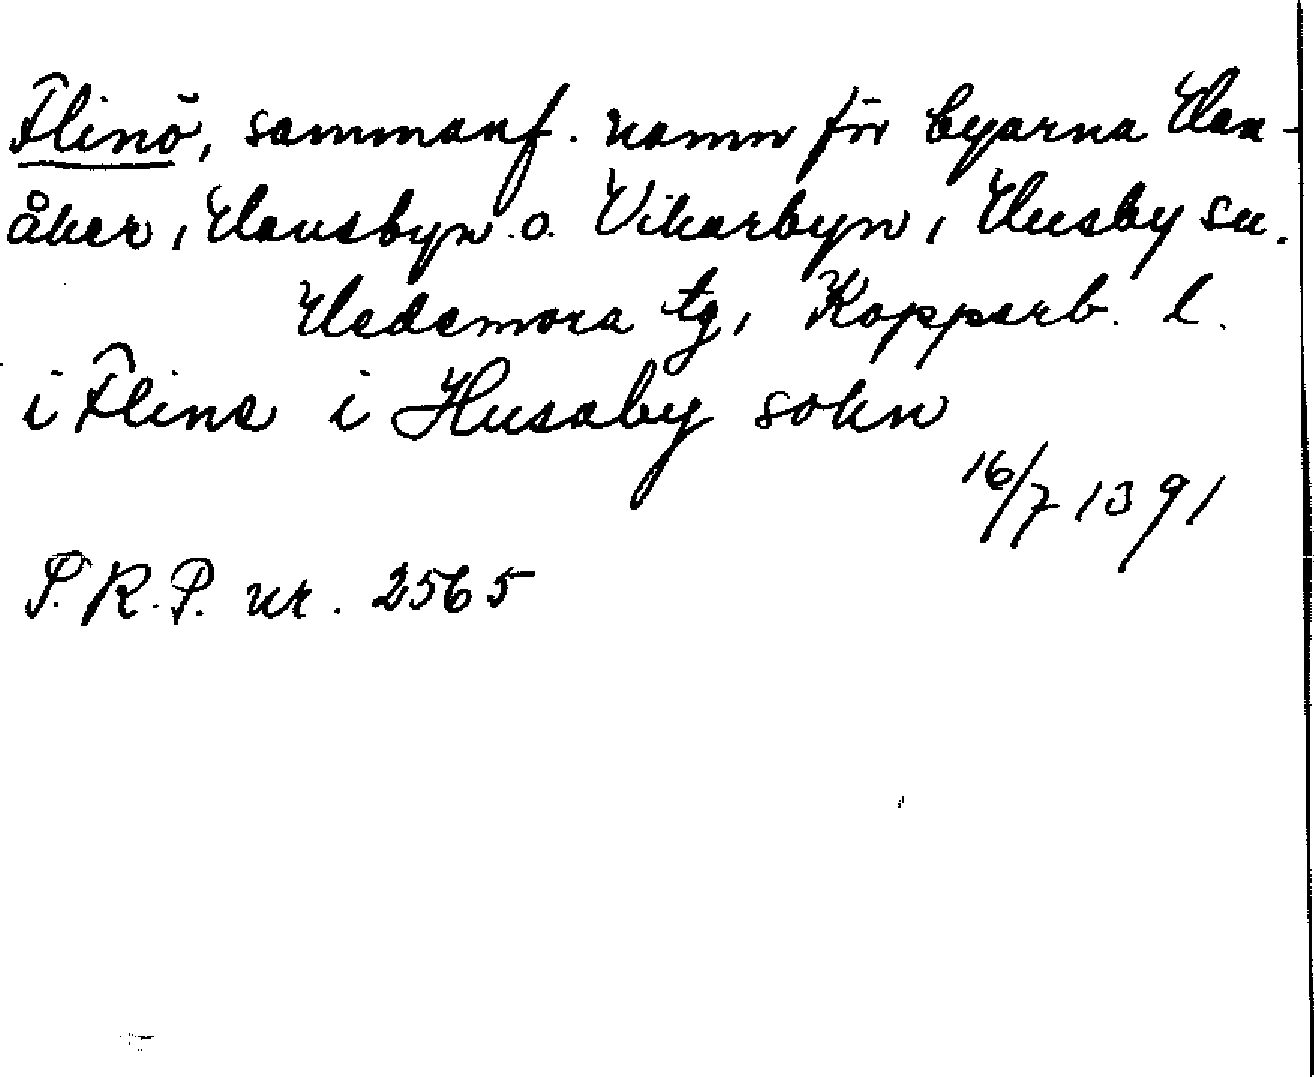 Flinö, sammanf. namn för byarna Han-
åker, Hansbyn o. Vikarbyn, Husby sn.
Hedemora tg, Kopparb. l.
i Fline i Husaby sokn
16/7 1391
S.R.P. nr. 2565